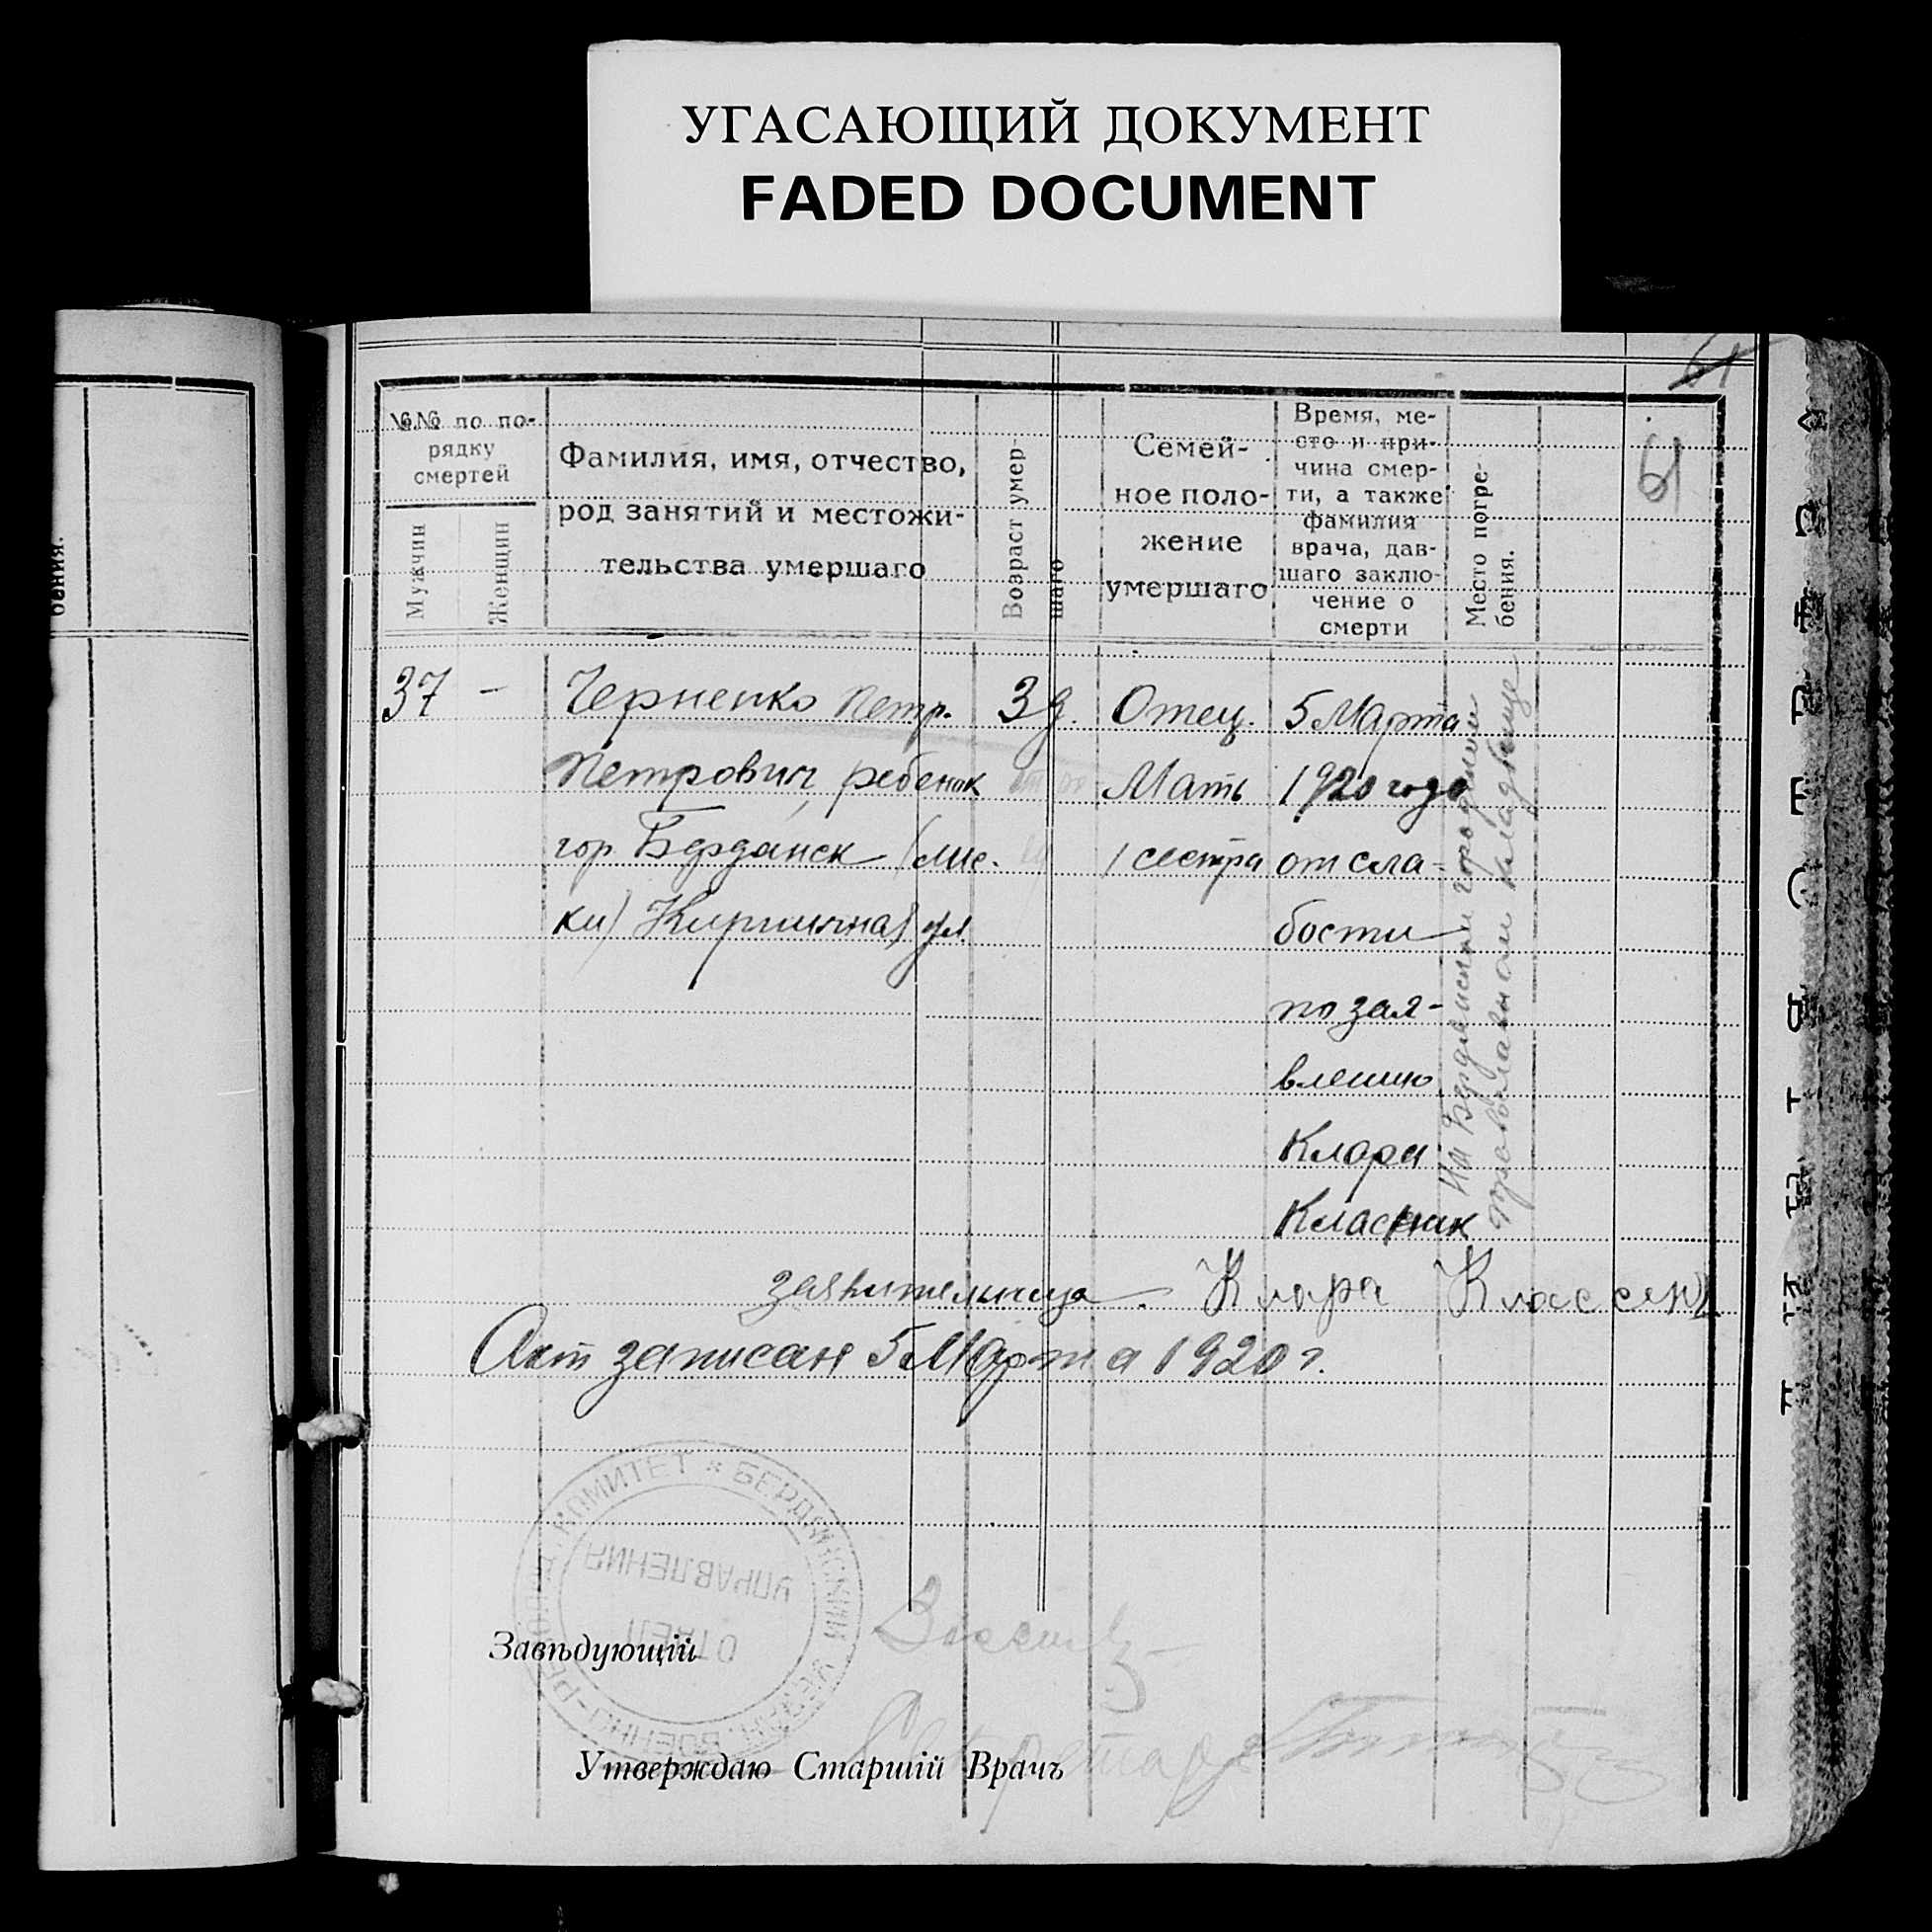 УГАСАЮЩИЙ ДОКУМЕНТ
FADED DOCUMENT
61
61
№№ по по-
рядку
смертей
Мужчин
Женщин
Фамилия, имя, отчество,
род занятий и местожи-
тельства умершаго
Возраст умер-
шаго
Семей-
ное поло-
жение
умершаго
Время, ме-
сто и при-
чина смер-
ти, а также
фамилия
врача, дав-
шаго заклю-
чение о
смерти
Место погре-
бения.
бения.
37 -
Черненко Петр.
Петрович, ребенок
гор Бердянск (лис.
ки) Кирпичная ул.
3 д.
Отец.
Мать
1 сестра
5 Марта
1920 года
от сла-
бости
по зая-
влению
Клара
На Бердянском городском
православном кладбище
заявительница. Клара Классенъ
Акт записан 5 Марта 1920 г.
КОМИТЕТ * БЕРДЯНСКИЙ
ВОЕННО-
ОТДЕЛ
УПРАВЛЕНИЯ
Завѣдующій
Утверждаю Старшій Врачъ
Секретарь